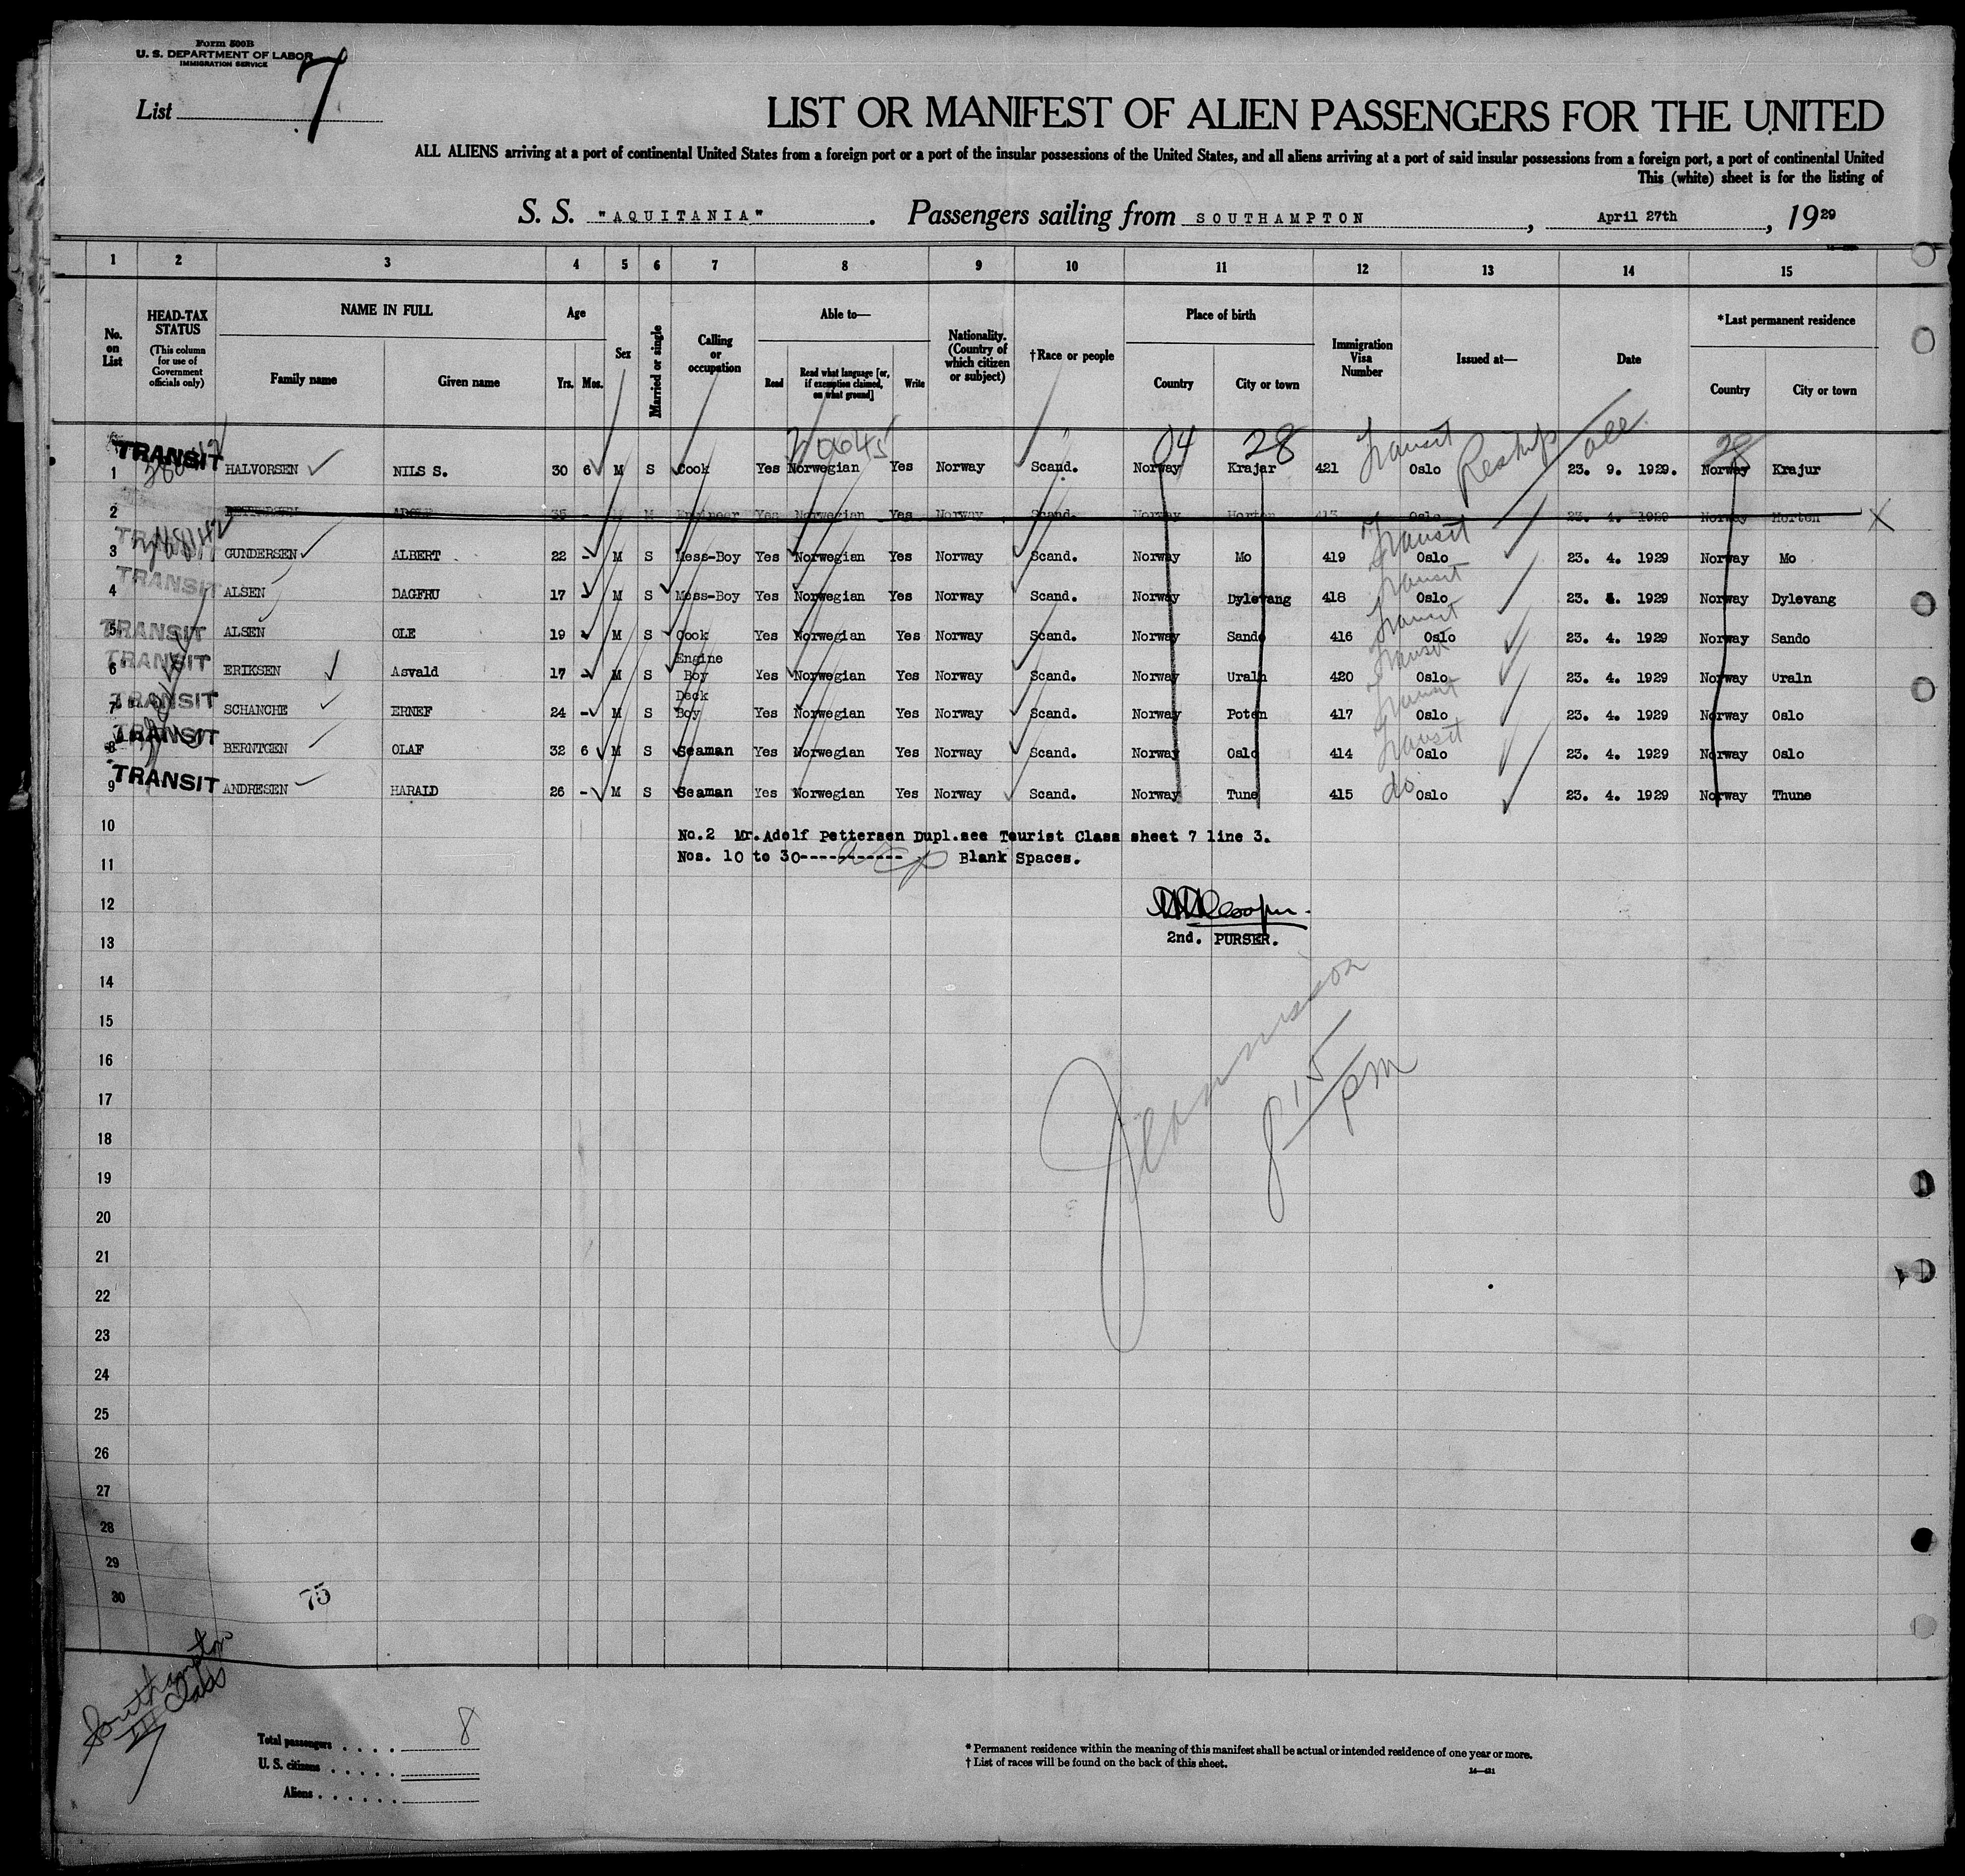 Form 500B
U. S. DEPARTMENT OF LABOR
IMMIGRATION SERVICE
List 7
LIST OR MANIFEST OF ALIEN PASSENGERS FOR THE UNITED
ALL ALIENS arriving at a port of continental United States from a foreign port or a port of the insular possessions of the United States, and all aliens arriving at a port of said insular possessions from a foreign port, a port of continental United
This (white) sheet is for the listing of
S. S. "AQUITANIA". Passengers sailing from SOUTHAMPTON, April 27th, 1929
1 2 3 4 5 6 7 8 9 10 11 12 13 14 15
No. on List
HEAD-TAX STATUS (This column for use of Government officials only)
NAME IN FULL
Family name Given name
Age
Yrs. Mos.
Sex
Married or single
Calling or occupation
Able to—
Read Read what language [or, if exemption claimed, on what ground] Write
Nationality. (Country of which citizen or subject)
†Race or people
Place of birth
Country City or town
Immigration Visa Number
Issued at—
Date
*Last permanent residence
Country City or town
04 28 Transit Reship all 28
TRANSIT 1 HALVORSEN NILS S. 30 6 M S Cook Yes Norwegian Yes Norway Scand. Norway Krajar 421 Oslo 23. 9. 1929. Norway Krajur
2 ADOLF 35 - M Engineer Yes Norwegian Yes Norway Scand. Norway Horten 413 Oslo 23. 4. 1929 Norway Horten X
TRANSIT 3 GUNDERSEN ALBERT 22 - M S Mess-Boy Yes Norwegian Yes Norway Scand. Norway Mo 419 Transit Oslo 23. 4. 1929 Norway Mo
TRANSIT 4 ALSEN DAGFRU 17 - M S Mess-Boy Yes Norwegian Yes Norway Scand. Norway Dylevang 418 Transit Oslo 23. 4. 1929 Norway Dylevang
TRANSIT 5 ALSEN OLE 19 - M S Cook Yes Norwegian Yes Norway Scand. Norway Sando 416 Transit Oslo 23. 4. 1929 Norway Sando
TRANSIT 6 ERIKSEN Asvald 17 - M S Engine Boy Yes Norwegian Yes Norway Scand. Norway Uraln 420 Transit Oslo 23. 4. 1929 Norway Uraln
TRANSIT 7 SCHANCHE ERNEF 24 - M S Deck Boy Yes Norwegian Yes Norway Scand. Norway Poten 417 Transit Oslo 23. 4. 1929 Norway Oslo
TRANSIT 8 BERNTGEN OLAF 32 6 M S Seaman Yes Norwegian Yes Norway Scand. Norway Oslo 414 Transit Oslo 23. 4. 1929 Norway Oslo
TRANSIT 9 ANDRESEN HARALD 26 - M S Seaman Yes Norwegian Yes Norway Scand. Norway Tune 415 do Oslo 23. 4. 1929 Norway Thune
10 No.2 Mr.Adolf Pettersen Dupl.see Tourist Class sheet 7 line 3.
11 Nos. 10 to 30------------ Blank Spaces.
12
13 2nd. PURSER.
14
15
16
17 8 15 pm
18
19
20
21
22
23
24
25
26
27
28
29
30
75
Southampton
III Class
7
Total passengers . . . . 8
U. S. citizens . . . . .
Aliens . . . . . .
* Permanent residence within the meaning of this manifest shall be actual or intended residence of one year or more.
† List of races will be found on the back of this sheet.
14—421